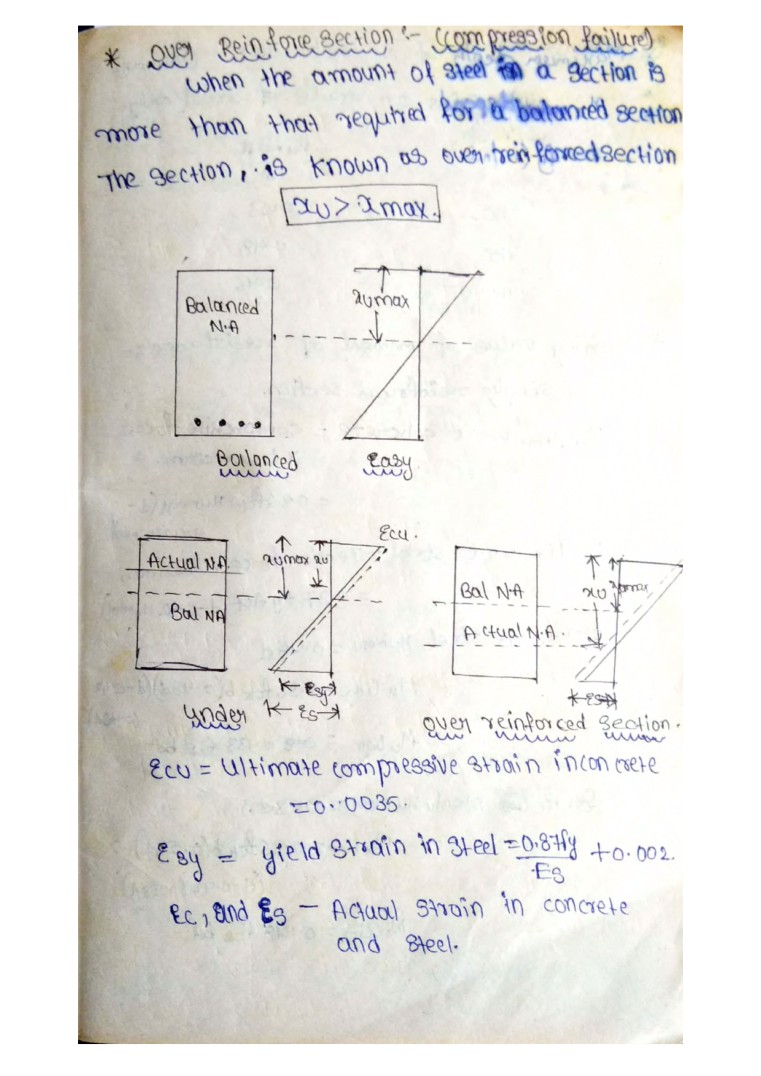 * Over Reinforce Section :- (Compression failure)
When the amount of steel in a section is
more than that required for a balanced section
The section, is known as over-reinforced section
xu > xmax.
Balanced
N.A
xumax
Balanced
Easy
Actual NA
Bal NA
xumax xu
Ecu.
Esy
Es
under
Bal NA
Actual N.A.
xu
xumax
over reinforced section.
Ecu = Ultimate compressive strain in concrete
= 0.0035
Esy = yield strain in steel = 0.87fy/Es + 0.002.
Ec, and Es - Actual strain in concrete
and steel.